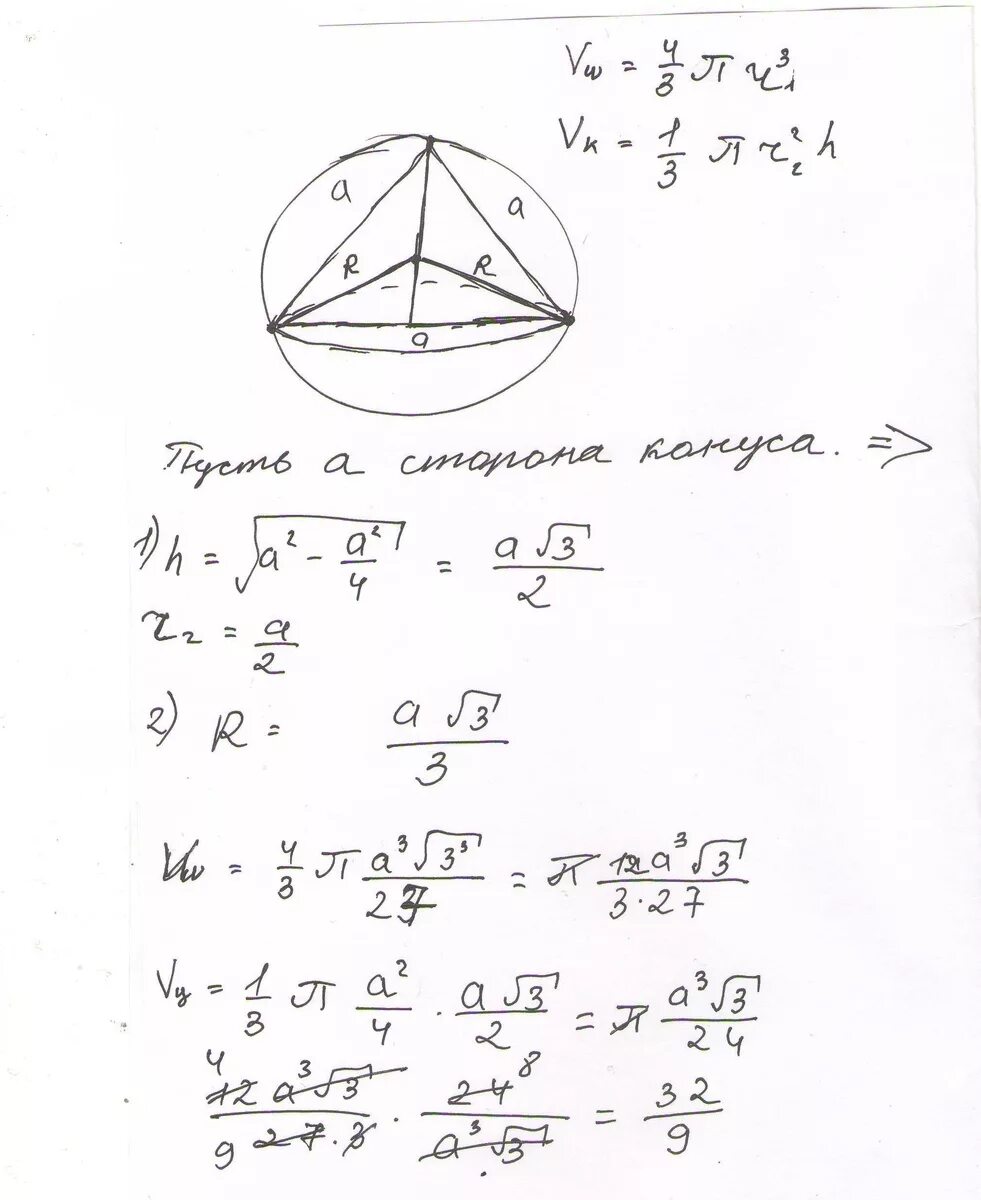 Vш = 4/3 π r₁³
Vк = 1/3 π r₂² h
a a
R R
a
Пусть a сторона конуса. =>
1) h = √(a² - a²/4) = a√3/2
r₂ = a/2
2) R = a√3/3
Vш = 4/3 π a³√3³/27 = π 12a³√3/3·27
Vц = 1/3 π a²/4 · a√3/2 = π a³√3/24
4 8
12 a³√3/27·3 · 24/a³√3 = 32/9
9